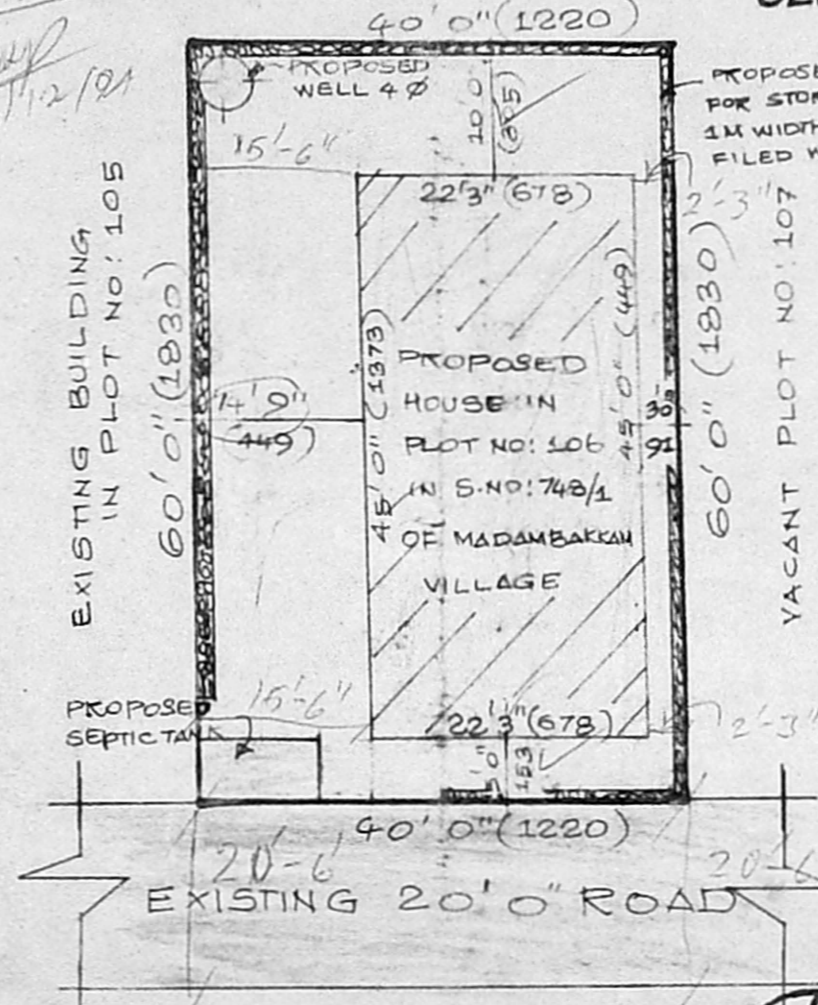 40' 0" (1220)
PROPOSED
WELL 4 Ø
10' 0"
PROPOSE
FOR STO
1M WIDTH
FILED W
15'-6"
22'3" (678)
2'-3"
EXISTING BUILDING
IN PLOT NO: 105
60' 0" (1830)
14' 9"
(449)
45' 0" (1373)
PROPOSED
HOUSE IN
PLOT NO: 106
IN S.NO: 748/1
OF MADAMBAKKAM
VILLAGE
45' 0" (449)
30
91
60' 0" (1830)
VACANT PLOT NO: 107
15'-6"
PROPOSED
SEPTIC TANK
22'3" (678)
153
2'-3"
40' 0" (1220)
20'-6
20'-6
EXISTING 20' 0" ROAD